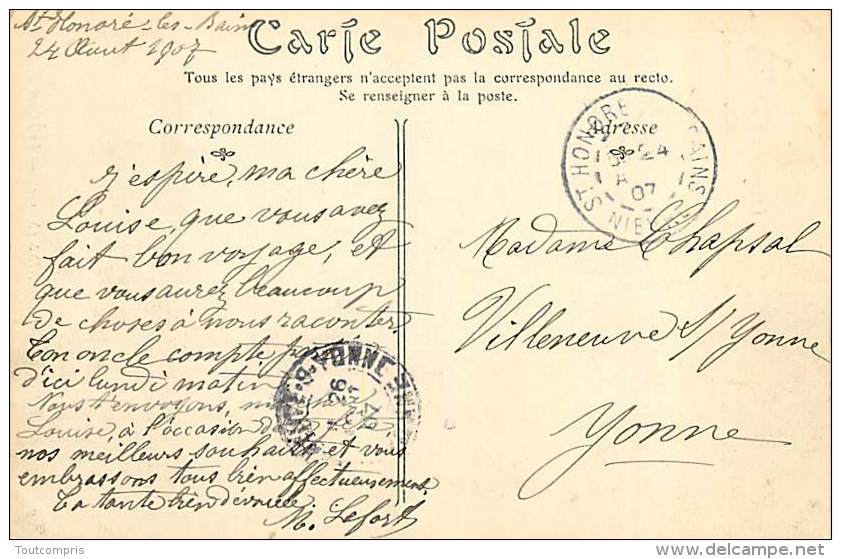 St Honoré-les-Bains
24 Août 1907
Carte Postale
Tous les pays étrangers n'acceptent pas la correspondance au recto.
Se renseigner à la poste.
Correspondance
J'espère, ma chère
Louise, que vous avez
fait bon voyage, et
que vous aurez beaucoup
de choses à nous raconter.
Ton oncle compte
d'ici lundi matin
Nous t'envoyons, ma
Louise, à l'occasion de ta fête,
nos meilleurs souhaits, et vous
embrassons tous bien affectueusement.
Ta tante bien dévouée
M. Lefort
Adresse
ST HONORE BAINS
24
07
NIEV
Madame Chapsal
Villeneuve s/Yonne
Yonne
YONNE
26
07
Toutcompris
www.delcampe.net